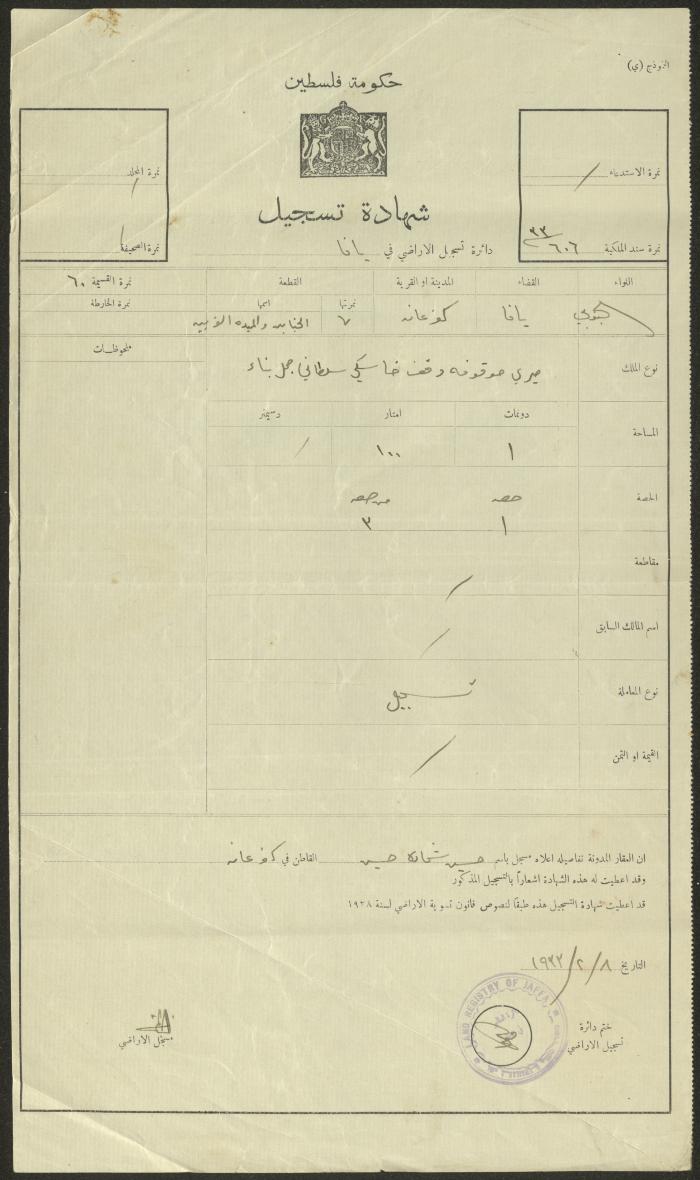 النموذج (ي)
حكومة فلسطين
نمرة الاستدعاء /
نمرة المجلد /
شهادة تسجيل
نمرة سند الملكية ٦٠٦ / ٣٣
نمرة الصحيفة /
دائرة تسجيل الاراضي في يافا
اللواء القضاء المدينة او القرية القطعة نمرة القسيمة ٦٠
نمرتها اسمها نمرة الخارطة
الجنوبي يافا كفرعانه ٧
ملحوظات
نوع الملك ميري موقوفه وقف خاسكي سلطاني بناء
دونمات امتار دسيمتر
المساحة ١ ١٠٠ /
الحصة حصه من حصه
١ ٣
مقاطعة /
اسم المالك السابق /
نوع المعاملة تسجيل
القيمة او الثمن /
ان العقار المدونة تفاصيله اعلاه مسجل باسم حسن شحاده حسين القاطن في كفرعانه
وقد اعطيت له هذه الشهادة اشعاراً بالتسجيل المذكور
قد اعطيت شهادة التسجيل هذه طبقاً لنصوص قانون تسوية الاراضي لسنة ١٩٢٨
التاريخ ٨/٢/١٩٣٣
LAND REGISTRY OF JAFFA
ختم دائرة
تسجيل الاراضي
مسجل الاراضي